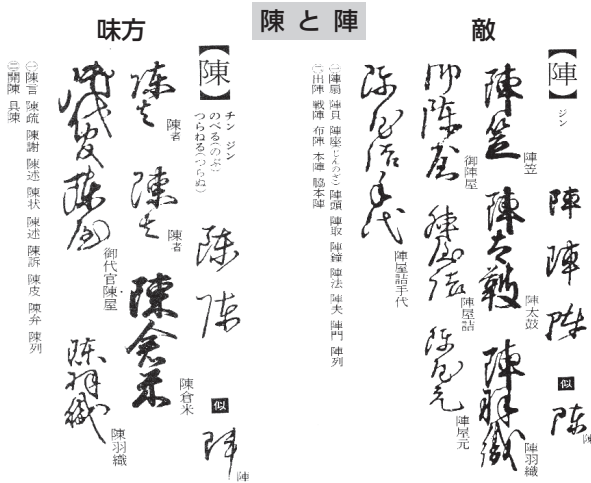 陳と陣
敵
【陣】
ジン
陣笠
陣太鼓
陣羽織
似
陳
御陣屋
陣屋詰
陣屋元
陣屋詰手代
㊀陣扇 陣貝 陣座(じんのざ) 陣頭 陣取 陣鐘 陣法 陣夫 陣門 陣列
㊁出陣 戦陣 布陣 本陣 脇本陣
味方
【陳】
チン ジン
のべる(のぶ)
つらねる(つらぬ)
似
陣
陳者
陳者
陳倉米
御代官陳屋
陳羽織
㊀陳言 陳疏 陳謝 陳述 陳状 陳述 陳訴 陳皮 陳弁 陳列
㊁開陳 具陳